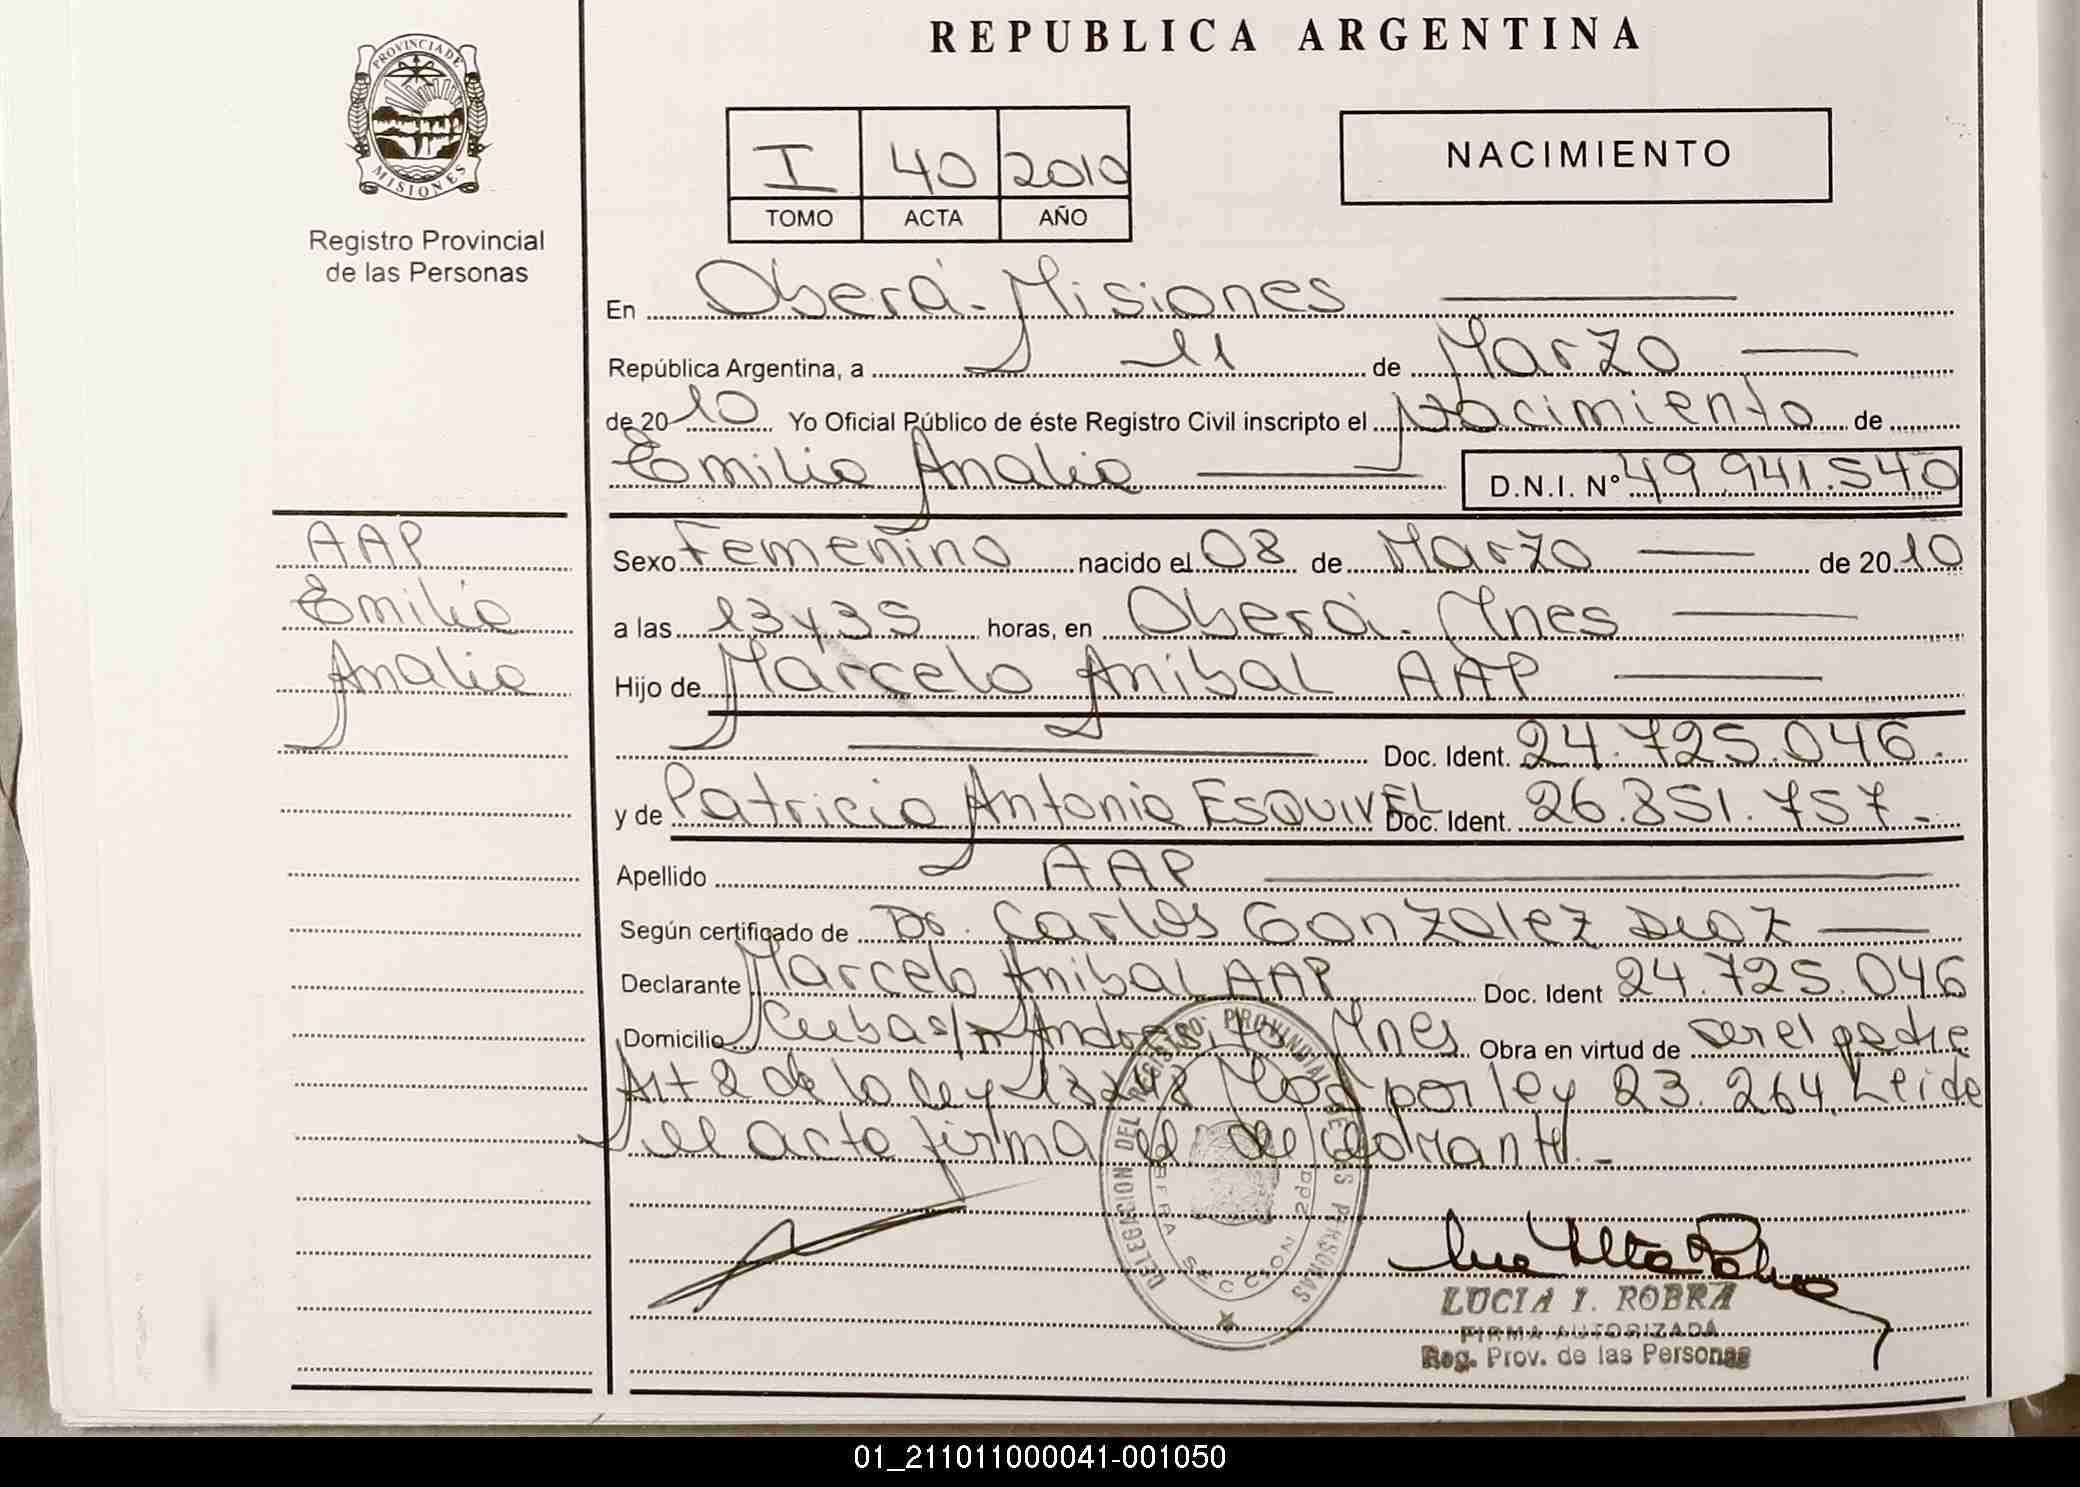 REPUBLICA ARGENTINA
PROVINCIA DE MISIONES
Registro Provincial
de las Personas
I 40 2010
TOMO ACTA AÑO
NACIMIENTO
En Oberá - Misiones
República Argentina, a 11 de Marzo
de 2010 Yo Oficial Público de éste Registro Civil inscripto el Nacimiento de
Emilia Analia D.N.I. N° 49.941.540
AAP
Emilia
Analia
Sexo Femenino nacido el 08 de Marzo de 2010
a las 13 y 35 horas, en Oberá - Mnes
Hijo de Marcelo Anibal AAP
Doc. Ident. 24.725.046.
y de Patricia Antonia ESQUIVEL Doc. Ident. 26.851.757.-
Apellido AAP
Según certificado de Dr. Carlos Gonzalez Diaz
Declarante Marcelo Anibal AAP Doc. Ident 24.725.046
Domicilio Cuba s/n Andresito Mnes Obra en virtud de ser el padre
Art 2 de la ley 18248 Mod por ley 23.264. Leida
el acta firma el declarante.-
DELEGACION DEL REGISTRO PROVINCIAL DE LAS PERSONAS
SECCION
LUCIA I. ROBRA
FIRMA AUTORIZADA
Reg. Prov. de las Personas
01_211011000041-001050